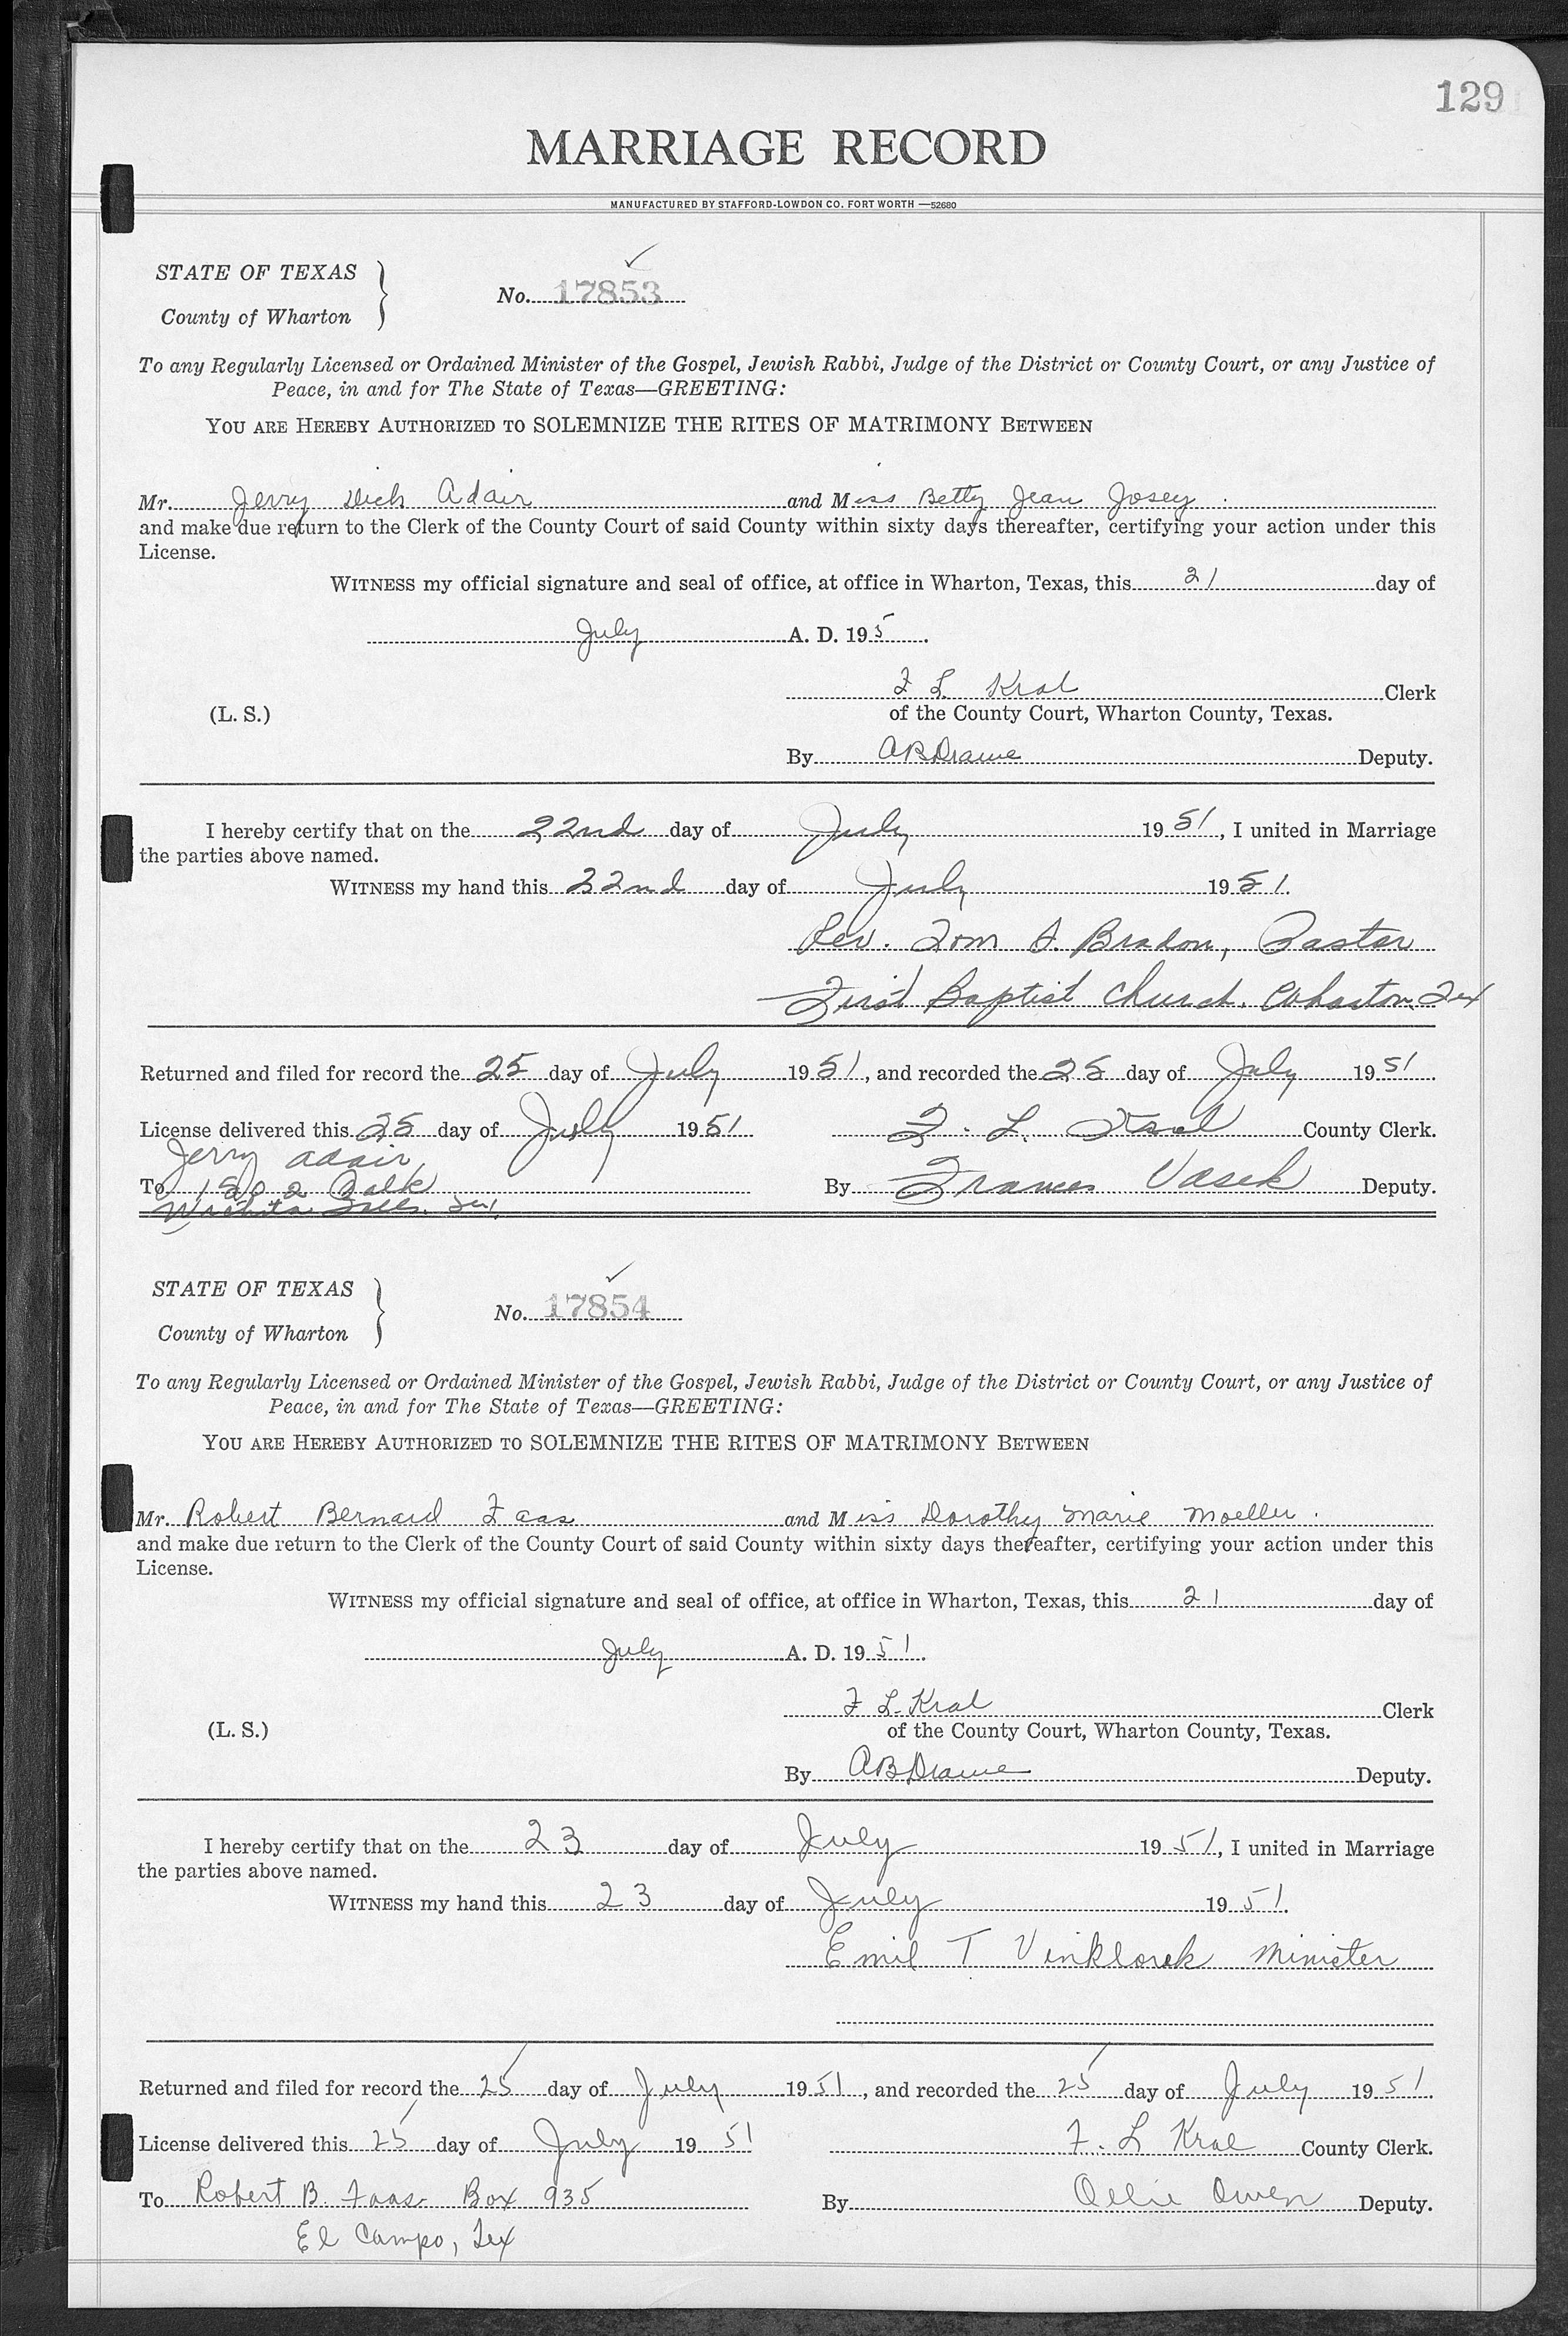 129
MARRIAGE RECORD
MANUFACTURED BY STAFFORD-LOWDON CO. FORT WORTH —52680
STATE OF TEXAS
County of Wharton
No. 17853
To any Regularly Licensed or Ordained Minister of the Gospel, Jewish Rabbi, Judge of the District or County Court, or any Justice of
Peace, in and for The State of Texas—GREETING:
YOU ARE HEREBY AUTHORIZED TO SOLEMNIZE THE RITES OF MATRIMONY BETWEEN
Mr. Jerry Dick Adair and Miss Betty Jean Josey.
and make due return to the Clerk of the County Court of said County within sixty days thereafter, certifying your action under this
License.
WITNESS my official signature and seal of office, at office in Wharton, Texas, this 21 day of
July A. D. 195 .
F L Kral Clerk
(L. S.) of the County Court, Wharton County, Texas.
By AB Deputy.
I hereby certify that on the 22nd day of July 1951, I united in Marriage
the parties above named.
WITNESS my hand this 22nd day of July 1951.
Rev. Tom A. Pastor
First Baptist Church, Wharton, Tex
Returned and filed for record the 25 day of July 1951, and recorded the 25 day of July 1951.
License delivered this 25 day of July 1951 F. L. Kral County Clerk.
Jerry Adair
To 1502 Polk By Frances Vasek Deputy.
Wichita Falls, Tex.
STATE OF TEXAS
County of Wharton
No. 17854
To any Regularly Licensed or Ordained Minister of the Gospel, Jewish Rabbi, Judge of the District or County Court, or any Justice of
Peace, in and for The State of Texas—GREETING:
YOU ARE HEREBY AUTHORIZED TO SOLEMNIZE THE RITES OF MATRIMONY BETWEEN
Mr. Robert Bernard Faas and Miss Dorothy Marie Moeller.
and make due return to the Clerk of the County Court of said County within sixty days thereafter, certifying your action under this
License.
WITNESS my official signature and seal of office, at office in Wharton, Texas, this 21 day of
July A. D. 1951.
F L. Kral Clerk
(L. S.) of the County Court, Wharton County, Texas.
By AB Deputy.
I hereby certify that on the 23 day of July 1951, I united in Marriage
the parties above named.
WITNESS my hand this 23 day of July 1951.
Emil T Vinklarek Minister
Returned and filed for record the 25 day of July 1951, and recorded the 25 day of July 1951.
License delivered this 25 day of July 1951 F. L Kral County Clerk.
To Robert B. Faas Box 935 By Ollie Owen Deputy.
El Campo, Tex